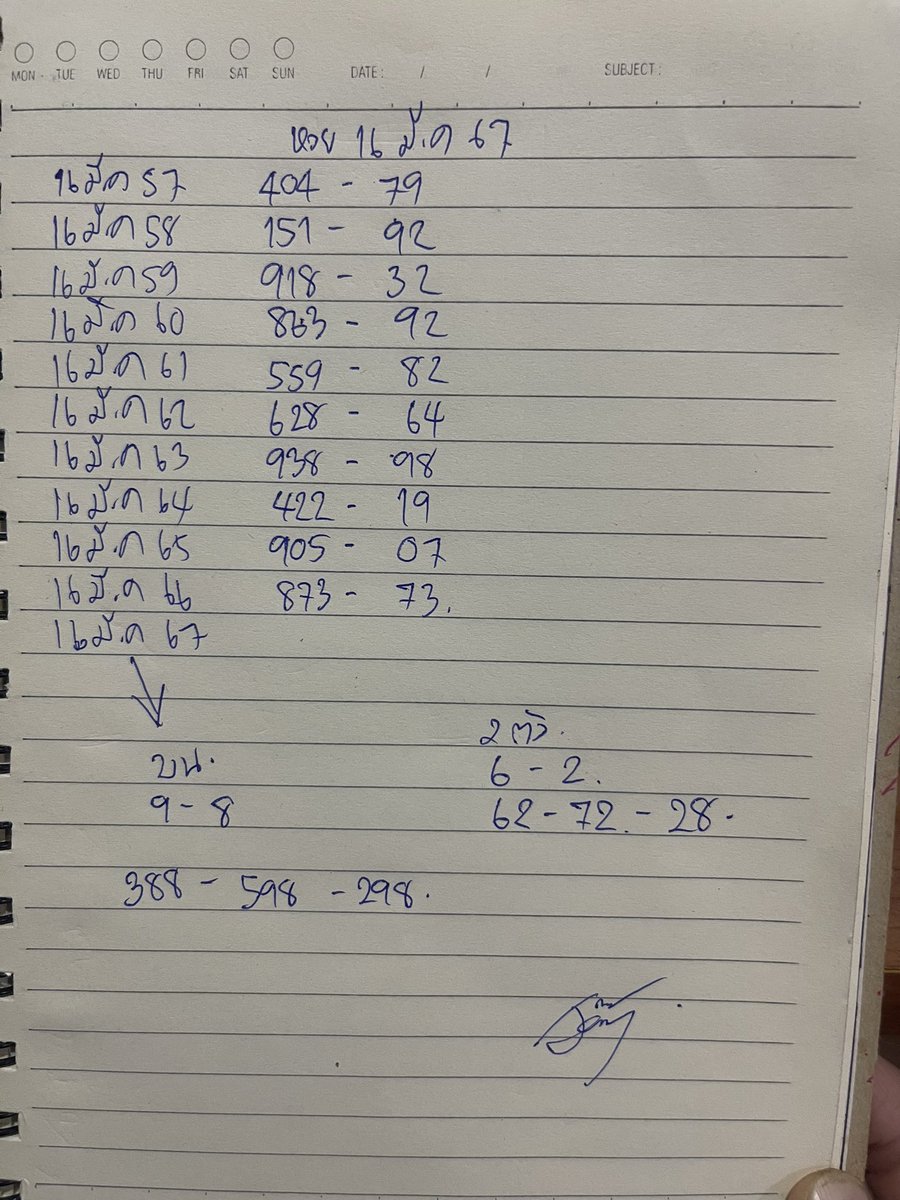 MON. TUE WED THU FRI SAT SUN DATE: / / SUBJECT:
หวย 16 มี.ค 67
16 มีค 57 404 - 79
16 มี.ค 58 151 - 92
16 มี.ค 59 918 - 32
16 มี.ค 60 863 - 92
16 มี.ค 61 559 - 82
16 มี.ค 62 628 - 64
16 มี.ค 63 938 - 98
16 มี.ค 64 422 - 19
16 มี.ค 65 905 - 07
16 มี.ค 66 873 - 73.
16 มี.ค 67
บน.
9 - 8
388 - 598 - 298.
2 ตัว.
6 - 2.
62 - 72. - 28.